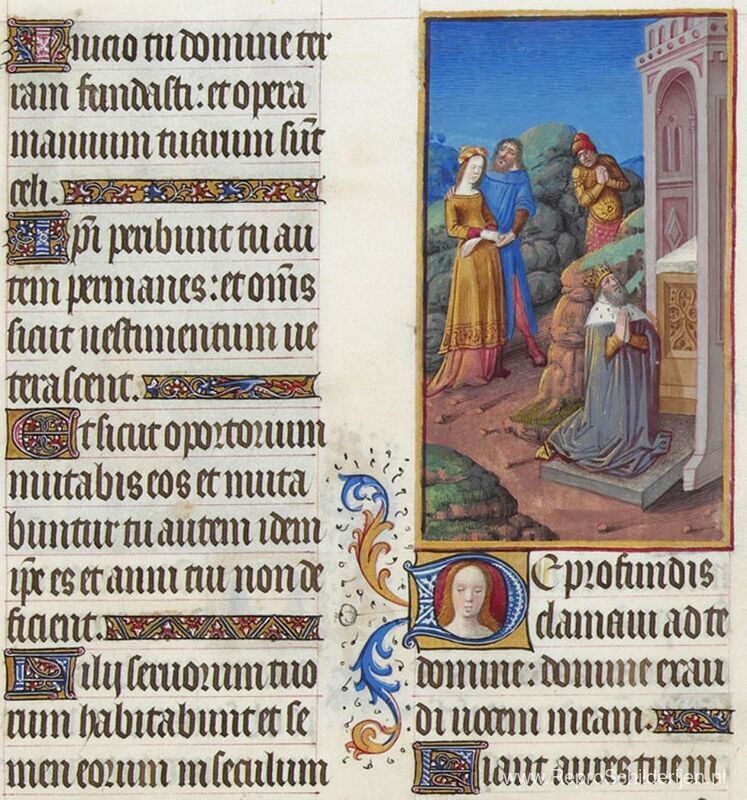 Inicio tu domine ter
ram fundasti: et opera
manuum tuarum sūt
celi.
Ipi peribunt tu au
tem permanes: et om̄s
sicut uestimentum ue
terascent.
Et sicut oportorium
mutabis eos et muta
buntur tu autem idem
ip̄e es et anni tui non de
ficient.
Filij seruorum tuo
rum habitabunt et se
men eorum in seculum
De profundis
clamaui ad te
domine: domine exau
di uocem meam.
Fiant aures tue in
www.ReproSchilderijen.nl